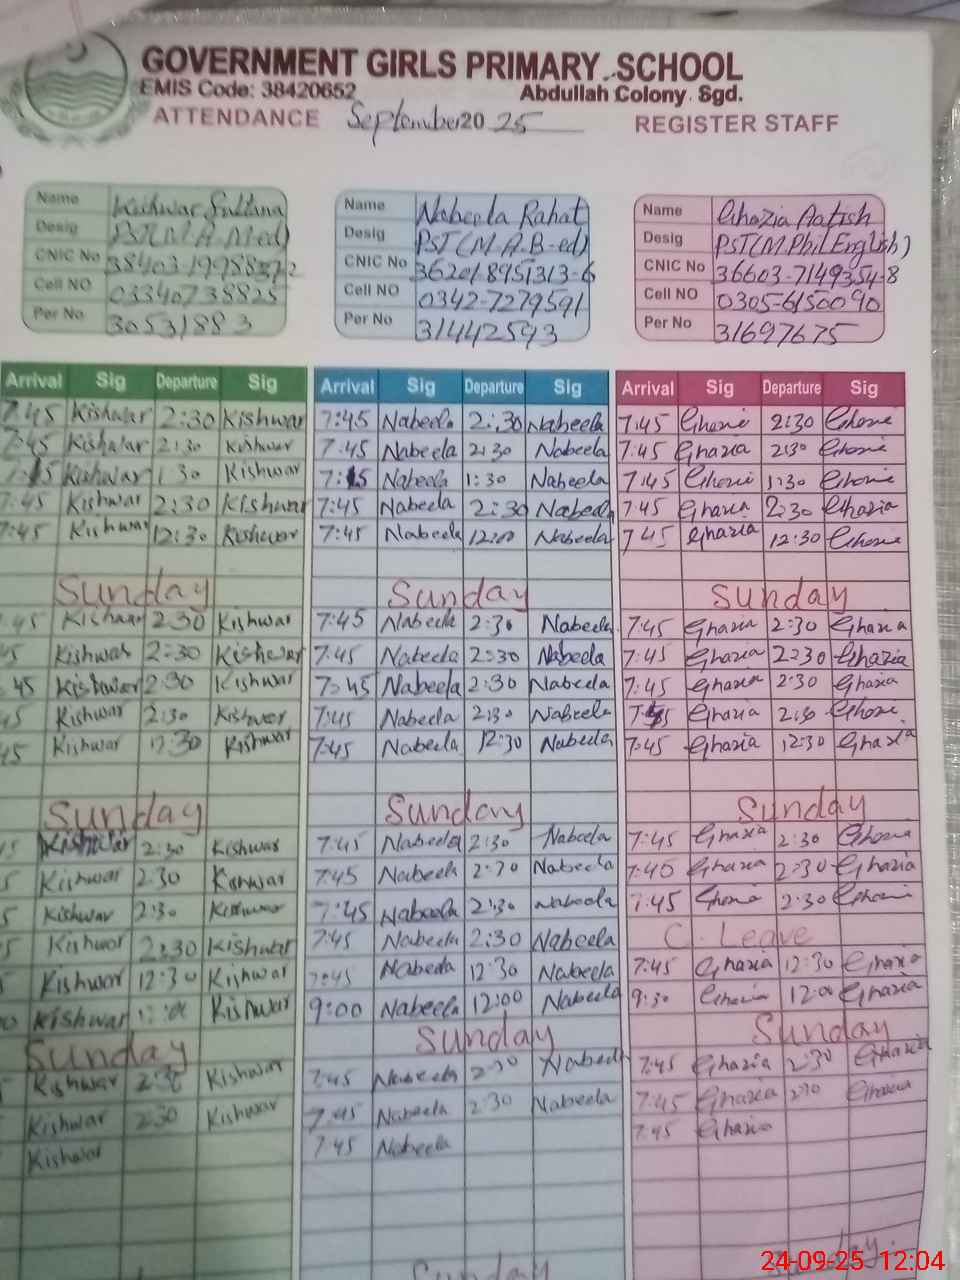 GOVERNMENT GIRLS PRIMARY SCHOOL
EMIS Code: 38420652 Abdullah Colony. Sgd.
ATTENDANCE September 2025 REGISTER STAFF
Name Kishwar Sultana Name Nabeela Rahat Name Ghazia Aatish
Desig PST(M.A.M.ed) Desig PST(M.A.B-ed) Desig PST(M.Phil English)
CNIC No CNIC No 36201-8951313-6 CNIC No 36603-7149354-8
Cell NO 03340738825 Cell NO 0342-7279591 Cell NO 0305-6150090
Per No 30531883 Per No 31442593 Per No 31697675
Arrival Sig Departure Sig Arrival Sig Departure Sig Arrival Sig Departure Sig
7:45 Kishwar 2:30 Kishwar 7:45 Nabeela 2:30 Nabeela 7:45 Ghazia 2:30 Ghazia
7:45 Kishwar 2:30 Kishwar 7:45 Nabeela 2:30 Nabeela 7:45 Ghazia 2:30 Ghazia
Kishwar 1:30 Kishwar Nabeela 1:30 Nabeela 7:45 Ghazia 1:30 Ghazia
7:45 Kishwar 2:30 Kishwar 7:45 Nabeela 2:30 Nabeela 7:45 Ghazia 2:30 Ghazia
7:45 Kishwar 12:30 Kishwar 7:45 Nabeela Nabeela 7:45 Ghazia 12:30 Ghazia
Sunday Sunday Sunday
45 Kishwar 2:30 Kishwar 7:45 Nabeela 2:30 Nabeela 7:45 Ghazia 2:30 Ghazia
45 Kishwar 2:30 Kishwar 7:45 Nabeela 2:30 Nabeela 7:45 Ghazia 2:30 Ghazia
45 Kishwar 2:30 Kishwar 7:45 Nabeela 2:30 Nabeela 7:45 Ghazia 2:30 Ghazia
45 Kishwar 2:30 Kishwar 7:45 Nabeela 2:30 Nabeela Ghazia 2:30 Ghazia
45 Kishwar 12:30 Kishwar 7:45 Nabeela 12:30 Nabeela 7:45 Ghazia 12:30 Ghazia
Sunday Sunday Sunday
5 Kishwar 2:30 Kishwar 7:45 Nabeela 2:30 Nabeela 7:45 Ghazia 2:30 Ghazia
5 Kishwar 2:30 Kishwar 7:45 Nabeela 2:30 Nabeela 7:45 Ghazia 2:30 Ghazia
5 Kishwar 2:30 Kishwar 7:45 Nabeela 2:30 Nabeela 7:45 Ghazia 2:30 Ghazia
5 Kishwar 2:30 Kishwar 7:45 Nabeela 2:30 Nabeela C. Leave
5 Kishwar 12:30 Kishwar 7:45 Nabeela 12:30 Nabeela 7:45 Ghazia 12:30 Ghazia
Kishwar Kishwar 9:00 Nabeela 12:00 Nabeela 9:30 Ghazia 12:00 Ghazia
Sunday Sunday Sunday
Kishwar 2:30 Kishwar 7:45 Nabeela 2:30 Nabeela 7:45 Ghazia 2:30 Ghazia
Kishwar 2:30 Kishwar 7:45 Nabeela 2:30 Nabeela 7:45 Ghazia 2:30 Ghazia
Kishwar 7:45 Nabeela 7:45 Ghazia
Sunday Sunday
24-09-25 12:04